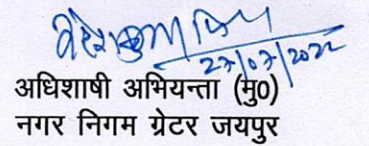 27/07/2022
अधिशाषी अभियन्ता (मु0)
नगर निगम ग्रेटर जयपुर